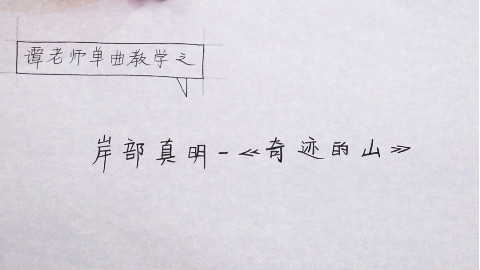 谭老师单曲教学之
岸部真明-《奇迹的山》